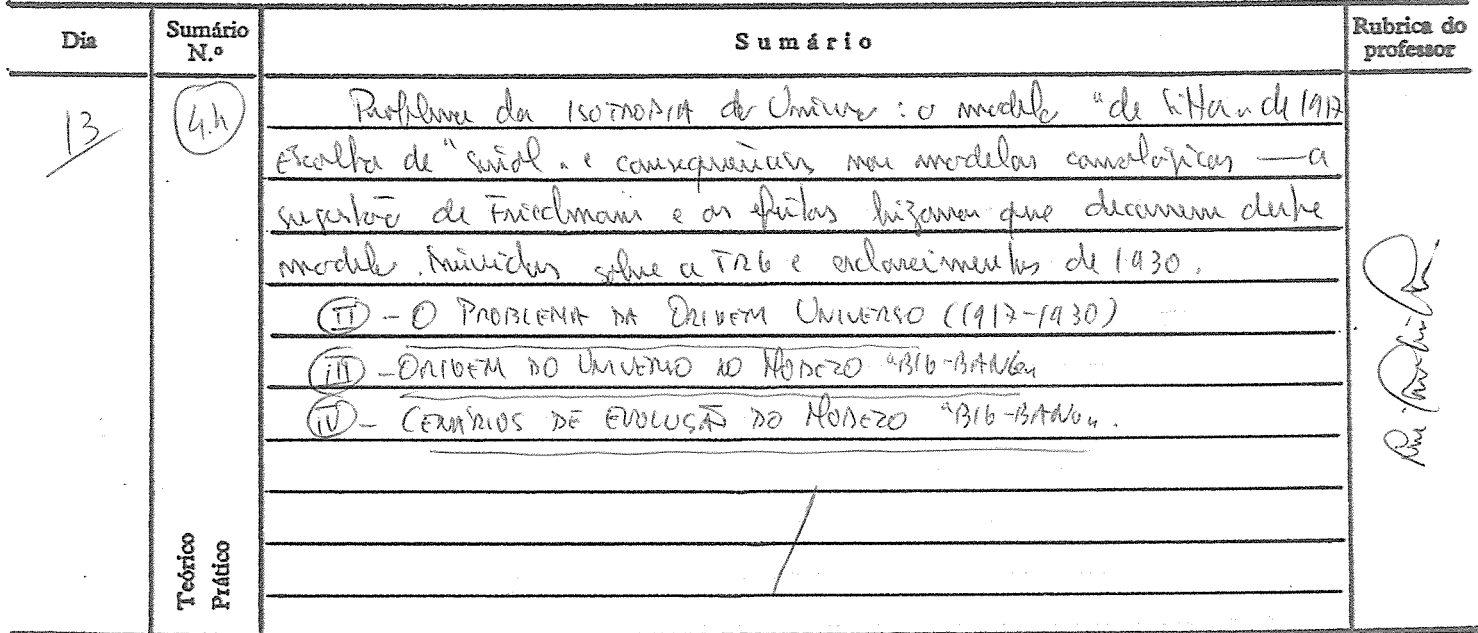 Dia
Sumário N.º
Sumário
Rubrica do professor
13
4.h
Problema da ISOTROPIA do Universo : o modelo "de Sitter" de 1917
Escolha de "sinal" e consequências nos modelos cosmológicos — a
sugestão de Friedmann e os efeitos bizarros que decorrem deste
modelo. Dúvidas sobre a TRG e esclarecimentos de 1930.
II - O PROBLEMA DA ORIGEM UNIVERSO (1917-1930)
III - ORIGEM DO UNIVERSO NO MODELO "BIG-BANG"
IV - CENÁRIOS DE EVOLUÇÃO DO MODELO "BIG-BANG".
Teórico
Prático
Rui